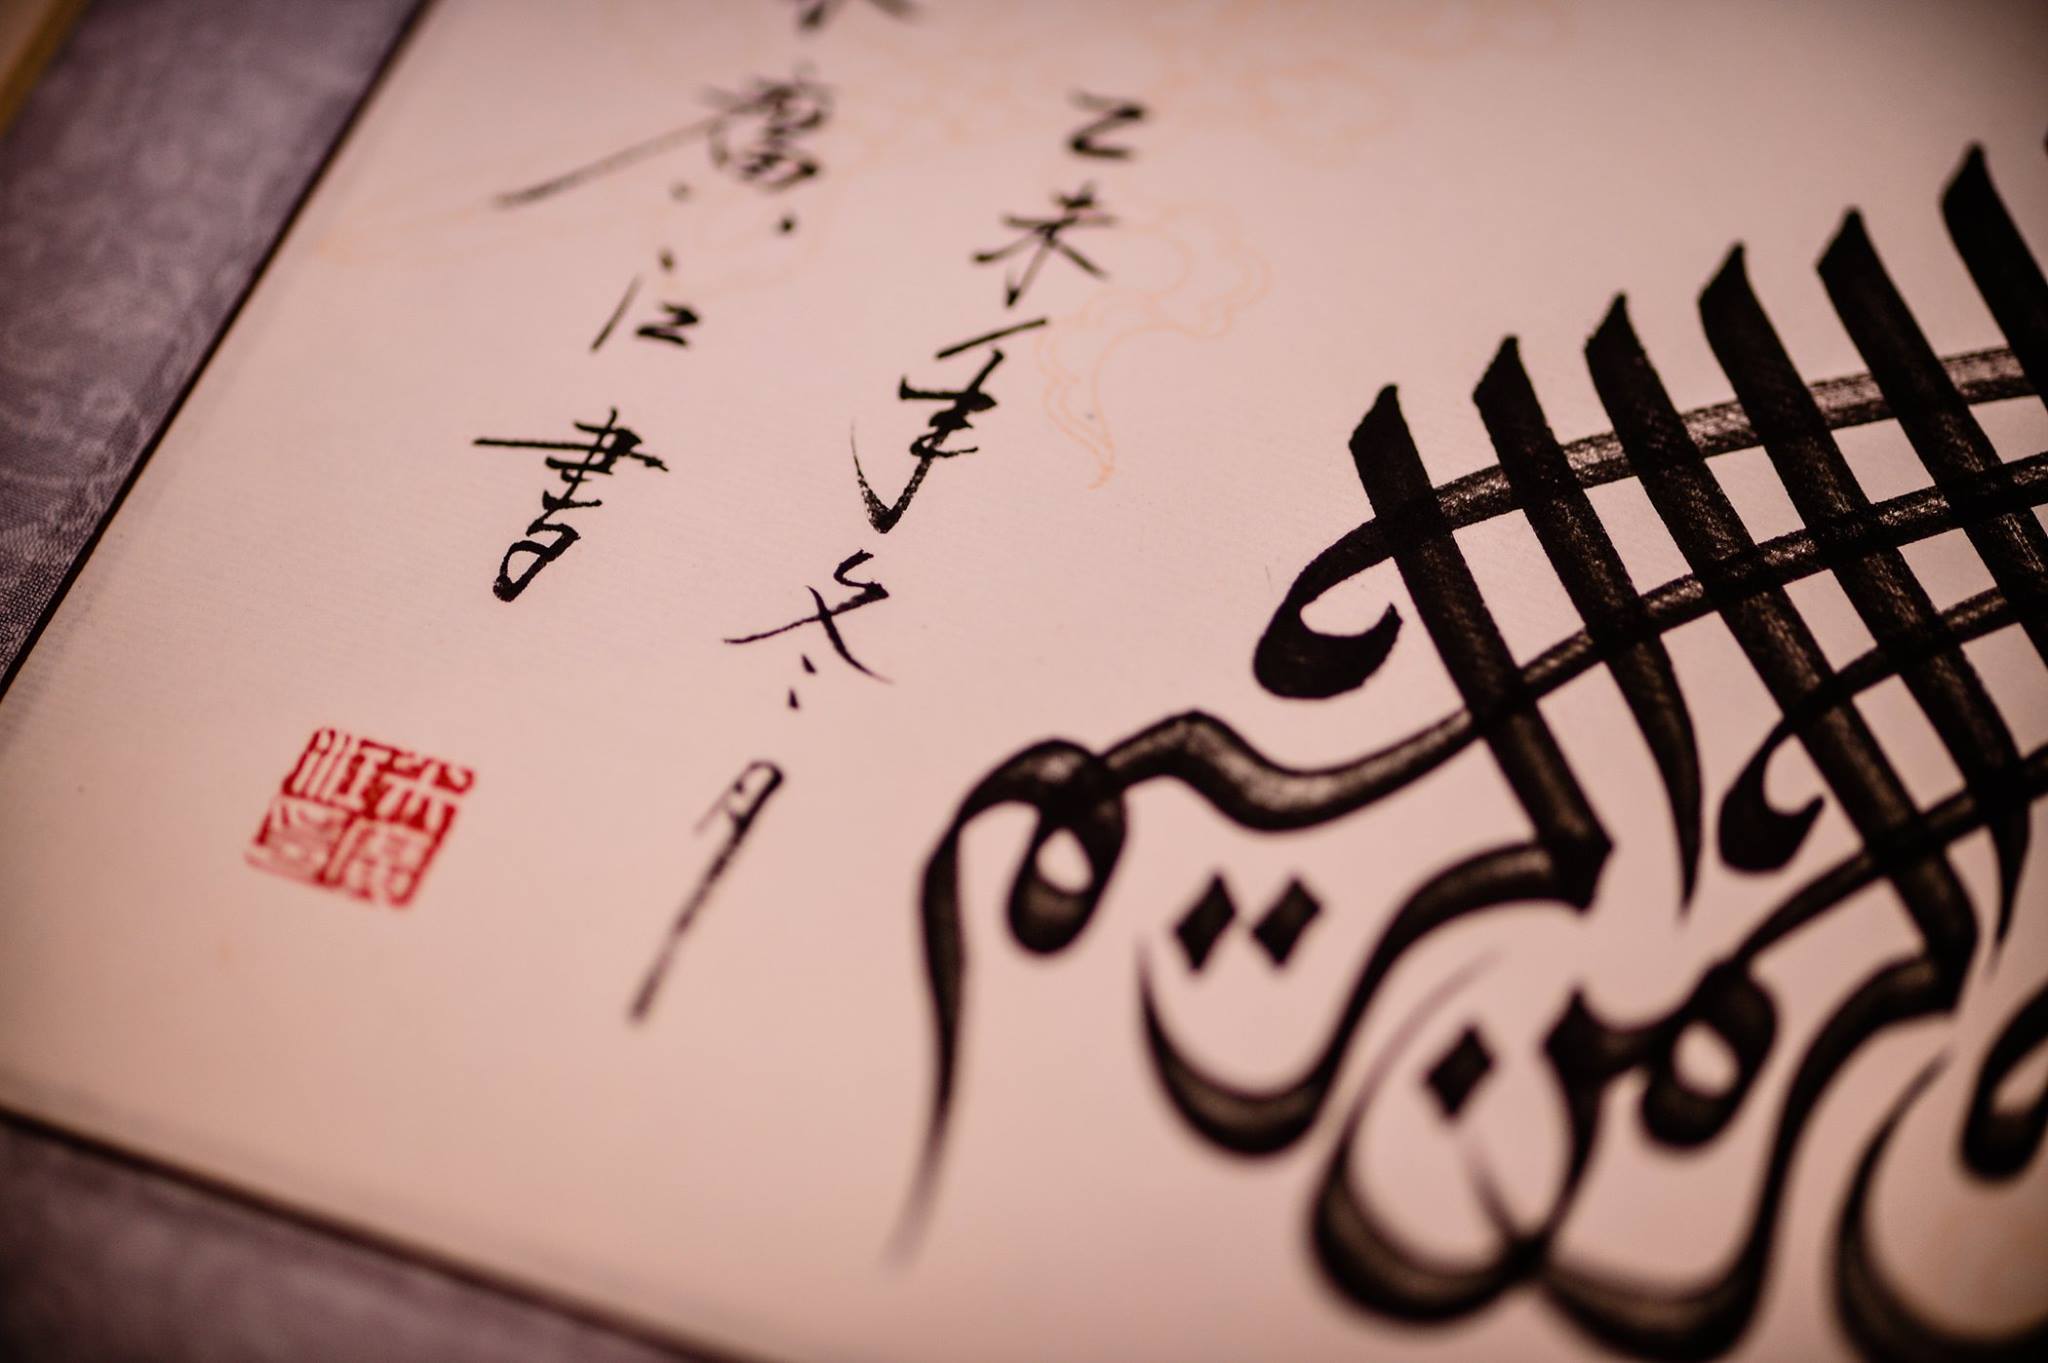 الرحمن الرحيم
乙未年冬月
米廣江書